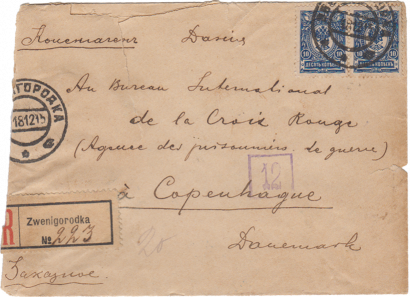 Копенгагенъ Данія
10 10
ДЕСЯТЬ КОПѢЕКЪ ДЕСЯТЬ КОПѢЕКЪ
Au Bureau International
ГОРОДКА
18 12 15
de la Croix Rouge
(Agence des prisonniers de guerre)
12
à Copenhague
R
Zwenigorodka
№ 223
Danemark
Заказное.